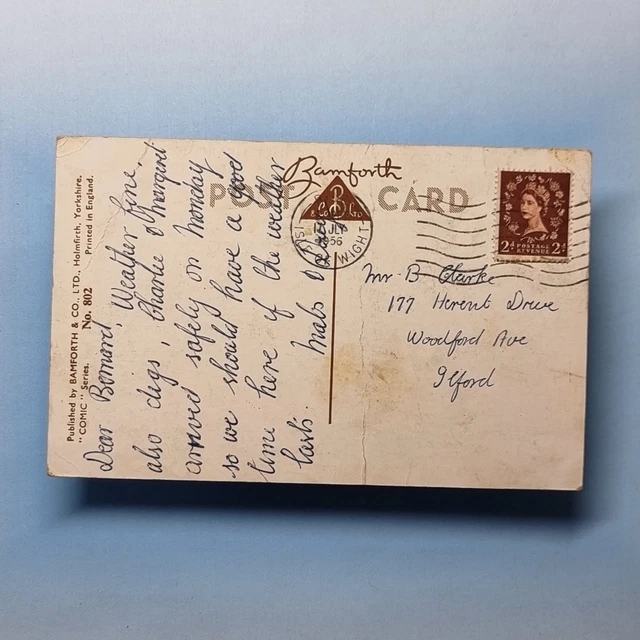 Published by BAMFORTH & CO., LTD., Holmfirth, Yorkshire.
"COMIC" Series. No. 802 Printed in England.
Bamforth
POST CARD
B
& Co LTD
ISLE OF WIGHT
JLY
1956
2d POSTAGE REVENUE 2d
Dear Bernard, Weather fine,
also digs, Charlie & Margaret
arrived safely on Monday
so we should have a good
time here if the weather
lasts. Mabs &
Mr B Clarke
177 Herent Drive
Woodford Ave
Ilford